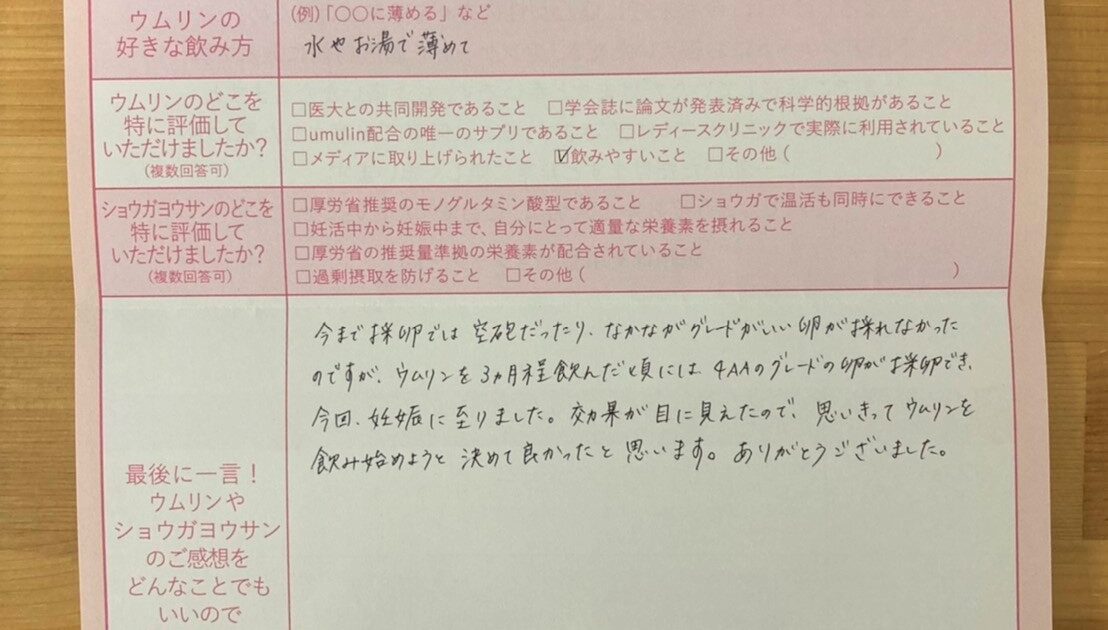 ウムリンの
好きな飲み方
(例)「〇〇に薄める」など
水やお湯で薄めて
ウムリンのどこを
特に評価して
いただけましたか?
(複数回答可)
□医大との共同開発であること □学会誌に論文が発表済みで科学的根拠があること
□umulin配合の唯一のサプリであること □レディースクリニックで実際に利用されていること
□メディアに取り上げられたこと ☑飲みやすいこと □その他( )
ショウガヨウサンのどこを
特に評価して
いただけましたか?
(複数回答可)
□厚労省推奨のモノグルタミン酸型であること □ショウガで温活も同時にできること
□妊活中から妊娠中まで、自分にとって適量な栄養素を摂れること
□厚労省の推奨量準拠の栄養素が配合されていること
□過剰摂取を防げること □その他( )
最後に一言!
ウムリンや
ショウガヨウサン
のご感想を
どんなことでも
いいので
今まで採卵では空砲だったり、なかなかグレードがいい卵が採れなかった
のですが、ウムリンを3ヵ月程飲んだ頃には、4AAのグレードの卵が採卵でき、
今回、妊娠に至りました。効果が目に見えたので、思いきってウムリンを
飲み始めようと決めて良かったと思います。ありがとうございました。